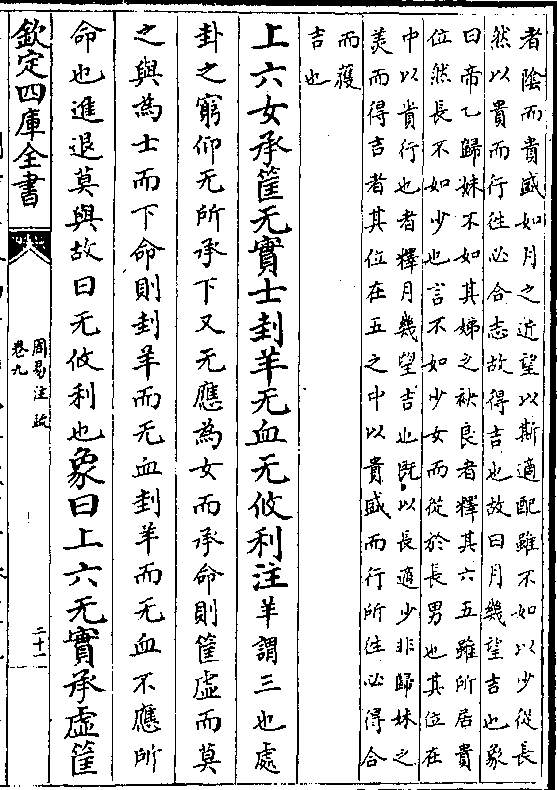 者陰而貴盛如月之近望以斯適配雖不如以少從長
然以貴而行往必合志故得吉也故曰月幾望吉也象
曰帝乙歸妹不如其娣之袂良者釋其六五雖所居貴
位然長不如少也言不如少女而從於長男也其位在
中以貴行也者釋月幾望吉也既以長適少非歸妹之
美而得吉者其位在五之中以貴盛而行所往必得合
而獲
吉也
上六女承筐无實士刲羊无血无攸利注羊謂三也處
卦之窮仰无所承下又无應為女而承命則筐虛而莫
之與為士而下命則刲羊而无血刲羊而无血不應所
命也進退莫與故曰无攸利也象曰上六无實承虛筐
欽定四庫全書
周易注疏
卷九
二十一